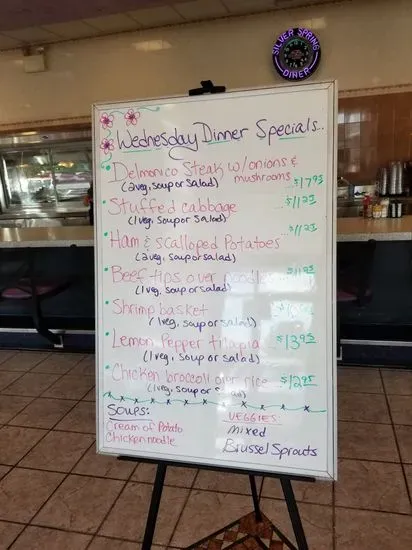 SILVER SPRING
DINER
Wednesday Dinner Specials..
Delmonico Steak w/onions &
mushrooms
(2 veg, soup or salad)
Stuffed cabbage
(1 veg, soup or salad)
Ham & scalloped Potatoes
(2 veg, soup or salad)
Beef tips over
(1 veg, soup or salad)
Shrimp basket
(1 veg, soup or salad)
Lemon Pepper tilapia
$13.95
(1 veg, soup or salad)
Chicken broccoli over rice
$12.95
(1 veg, soup or salad)
Soups:
Cream of Potato
Chicken noodle
VEGGIES:
mixed
Brussel Sprouts